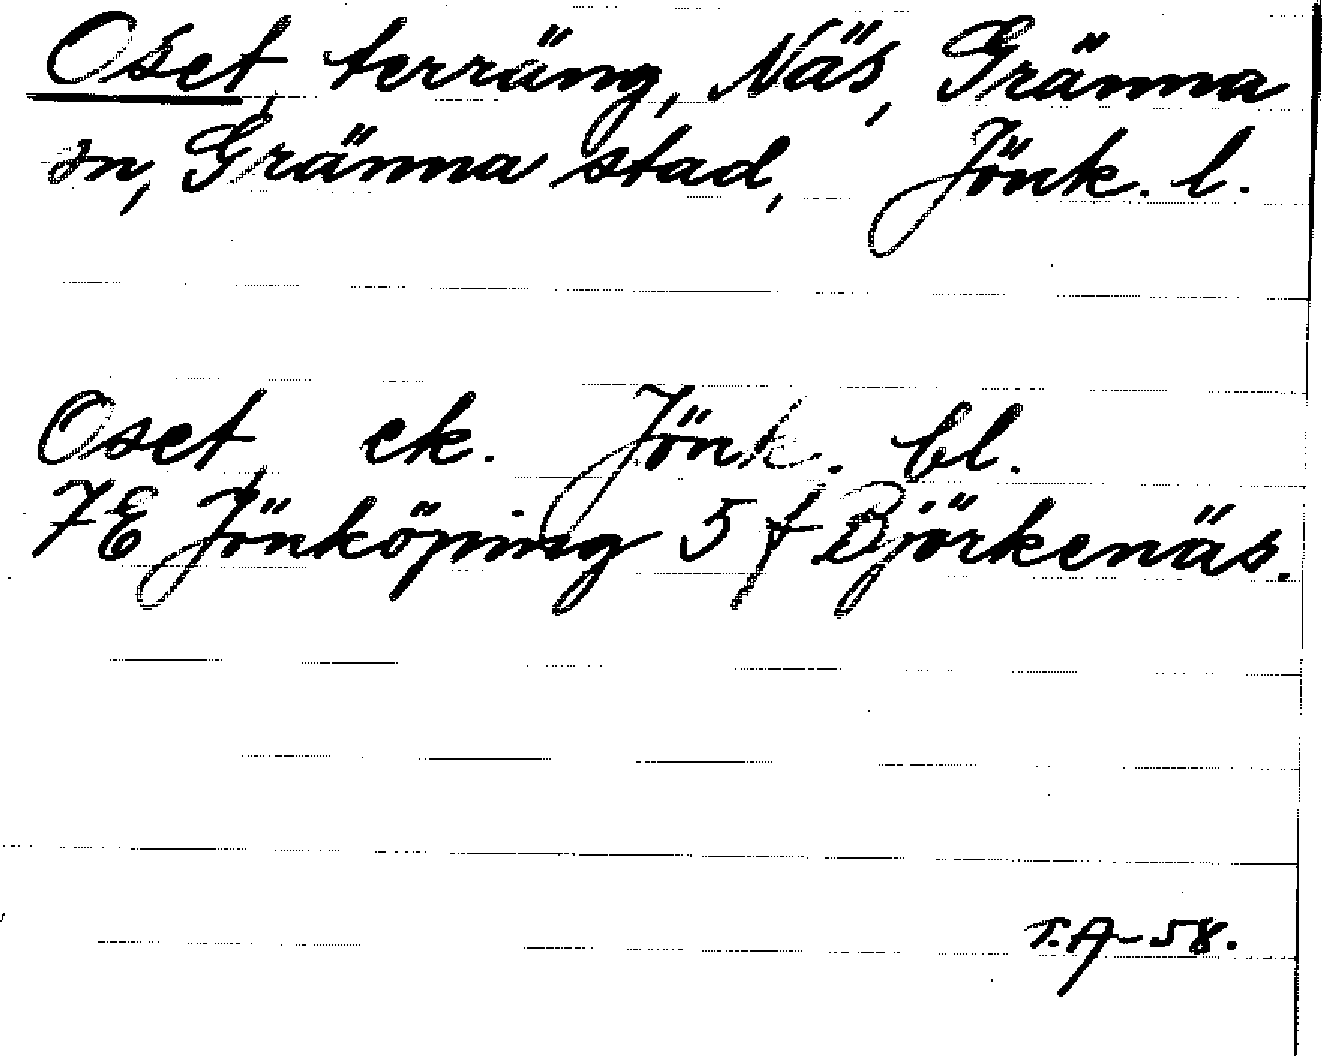 Oset, terräng, Näs, Gränna
sn, Gränna stad, Jönk. l.
Oset ek. Jönk. bl.
7E Jönköping 5 f Björkenäs.
T.A-58.